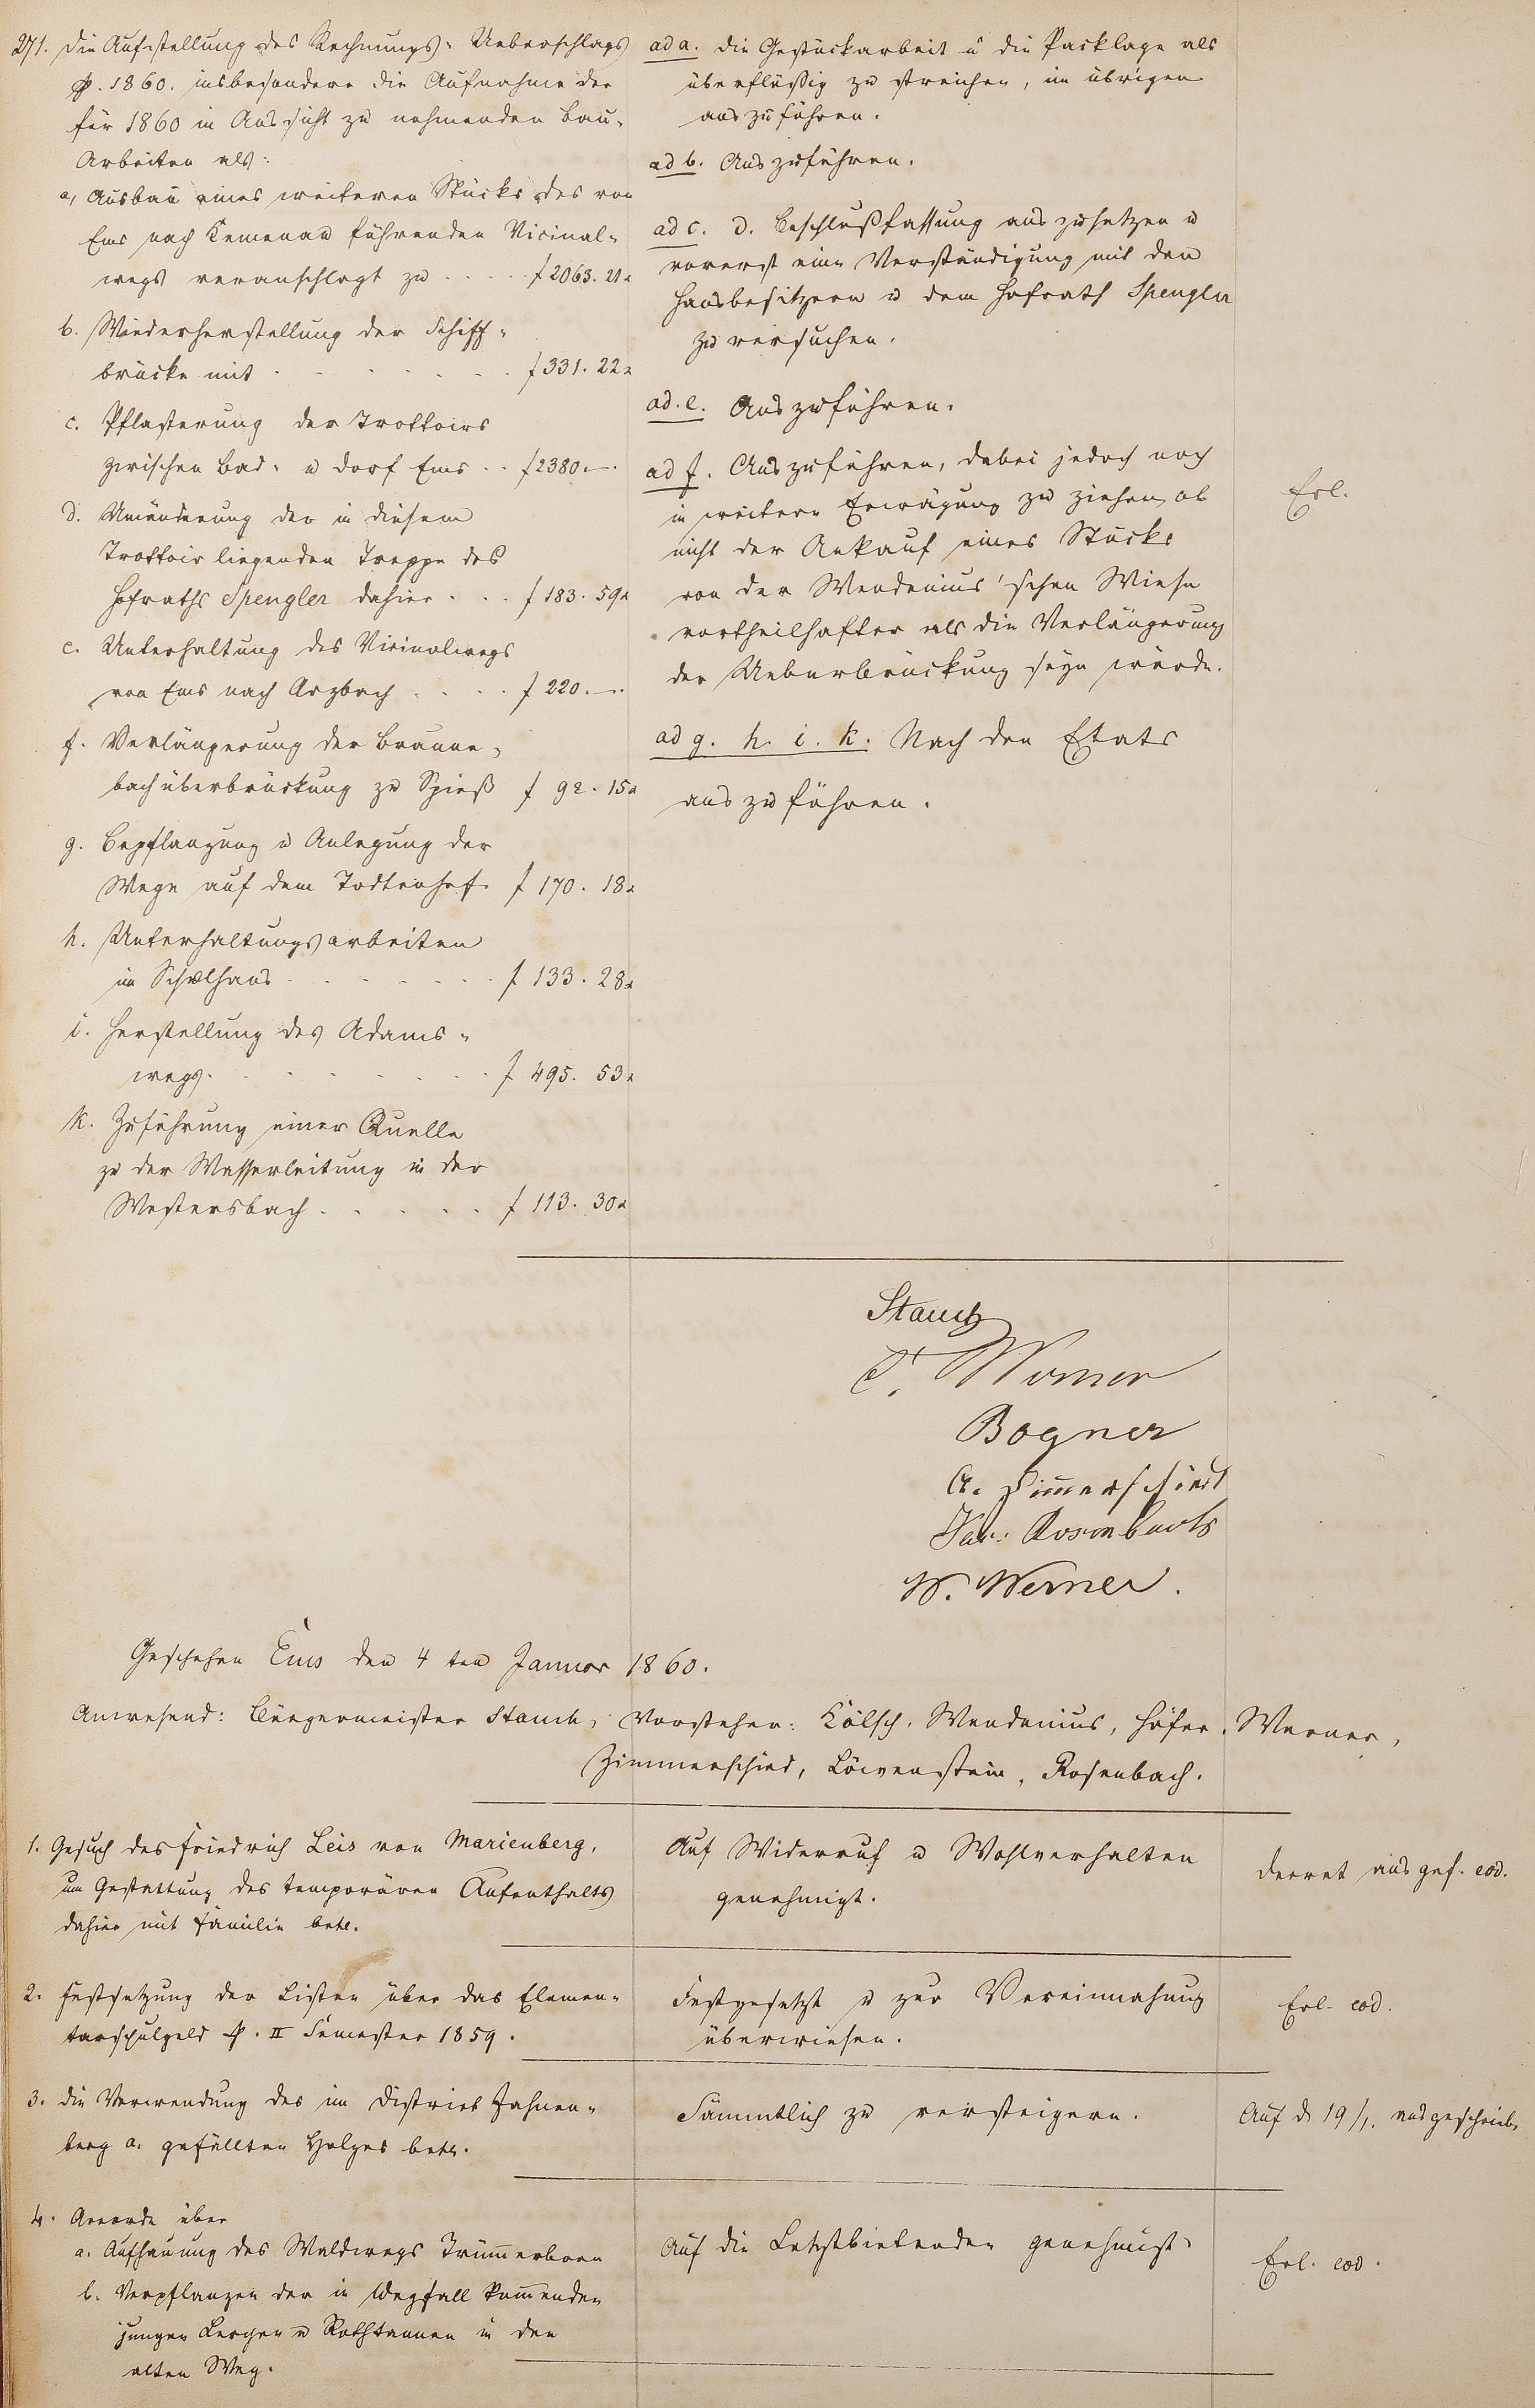 271. Die Aufstellung des Rechnungs-Ueberschlags
p. 1860. insbesondere die Aufnahme der
für 1860 in Aussicht zu nehmenden Bau-
Arbeiten als:
a, Ausbau eines weiteren Stücks des von
Ems nach Kemenau führenden Vicinal-
wegs veranschlagt zu . . . . . f 2063. 21 x
b. Wiederherstellung der Schiff-
brücke mit . . . . . . f 331. 22 x
c. Pflasterung der Trottoirs
zwischen Bad- u Dorf Ems . . f 2380.—.
d. Umänderung der in diesem
Trottoir liegenden Treppe des
Hofraths Spengler dahier . . . f 183. 59 x
e. Unterhaltung des Vicinalwegs
von Ems nach Arzbach . . . . f 220.—.
f. Verlängerung der Braune-
bachüberbrückung zu Spieß f 92. 15 x
g. Bepflanzung u Anlegung der
Wege auf dem Todtenhof. f 170. 18 x
h. Unterhaltungsarbeiten
im Schulhaus . . . . . . f 133. 28 x
i. Herstellung des Adams-
wegs. . . . . . . . f 495. 53 x
k. Zuführung einer Quelle
zu der Wasserleitung in der
Westersbach . . . . . f 113. 30 x
ad a. Die Gestückarbeit u die Packlage als
überflüßig zu streichen, im übrigen
auszuführen.
ad b. Auszuführen.
ad c. d. Beschlußfassung auszusetzen u
vorerst eine Verständigung mit den
Hausbesitzern u dem Hofrath Spengler
zu versuchen.
ad. e. Auszuführen.
ad f. Auszuführen, dabei jedoch noch
in weitere Erwägung zu ziehen, ob
nicht der Ankauf eines Stücks
von der Wendenius'schen Wiese
vortheilhafter als die Verlängerung
der Ueberbrückung seyn würde.
Erl.
ad g. h. i. k. Nach den Etats
auszuführen.
Stauch
T. Werner
Bogner
A. Zimmerschied
Rosenbach
W. Werner.
Geschehen Ems den 4ten Januar 1860.
Anwesend: Bürgermeister Stauch, Vorsteher: Kölsch. Wendenius, Höfer. Werner,
Zimmerschied, Löwenstein, Rosenbach.
1. Gesuch des Friedrich Leis von Marienberg,
um Gestattung des temporären Aufenthalts
dahier mit Familie betr.
Auf Widerruf u Wohlverhalten
genehmigt.
Decret ausgef. eod.
2. Festsetzung der Listen über das Elemen-
tarschulgeld p. II Semester 1859.
Festgesetzt u zur Vereinnahmung
überwiesen.
Erl. eod.
3. Die Verwendung des im District Hahnen-
berg a. gefällten Holzes betr.
Sämmtlich zu versteigern.
Auf d 19/1. ausgeschrieb.
4. Accorde über
a. Aufhauung des Waldwegs Trümmerborn
b. Verpflanzen der in Wegfall kommenden
jungen Lerchen u Rothtannen in den
alten Weg.
Auf die Letztbietenden genehmigt.
Erl. eod.